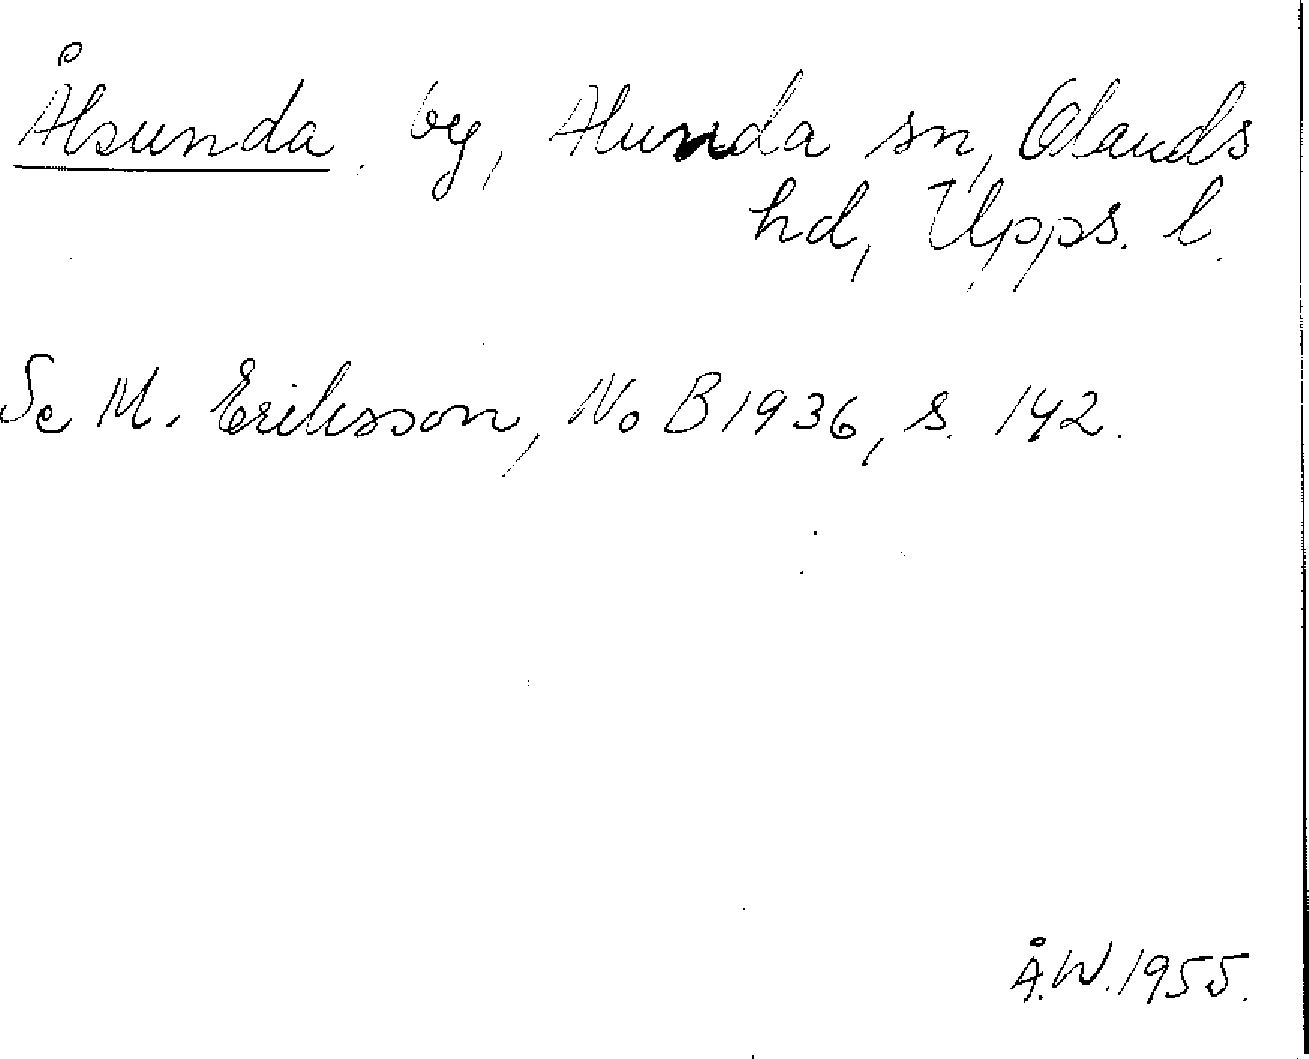 Ålsunda. by, Alunda sn, Olands
hd, Upps. l.
Se M. Eriksson, No B 1936, s. 142.
Å.W. 1955.